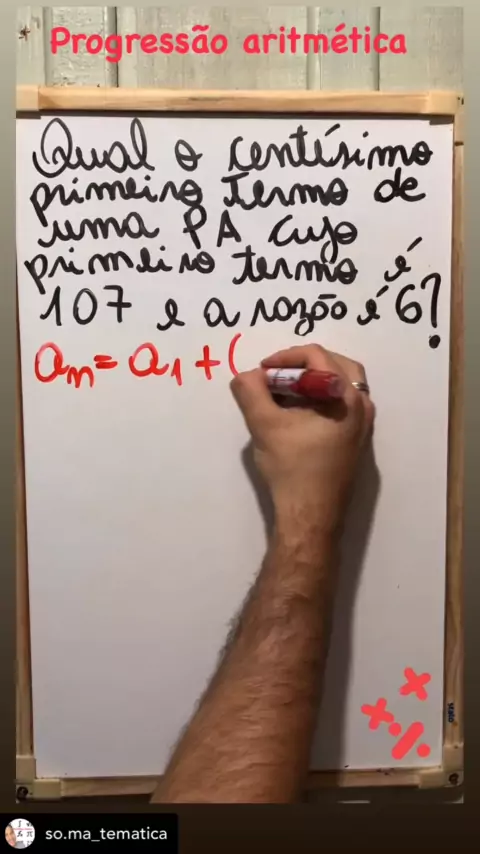 Progressão aritmética
Qual o centésimo
primeiro termo de
uma PA cujo
primeiro termo é
107 e a razão é 6?
an = a1 + (
so.ma_tematica